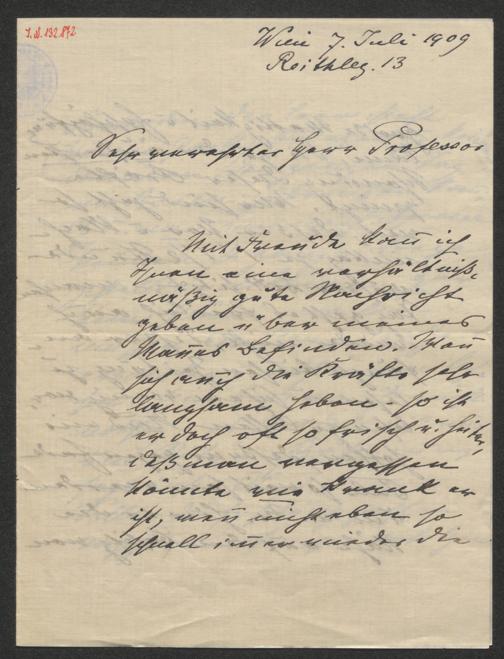 I.N. 132.872
Wien 7. Juli 1909
Reithleg. 13
Sehr verehrter Herr Professor
Mit Freude kan̄ ich
Ihnen eine verhältniß-
mäßig gute Nachricht
geben über meines
Man̄es Befinden. Wen̄
sich auch die Kräfte sehr
langsam heben - so ist
er doch oft so frisch u heiter,
daß man vergessen
könnte wie krank er
ist, wen̄ nicht eben so
schnell im̄er wieder die